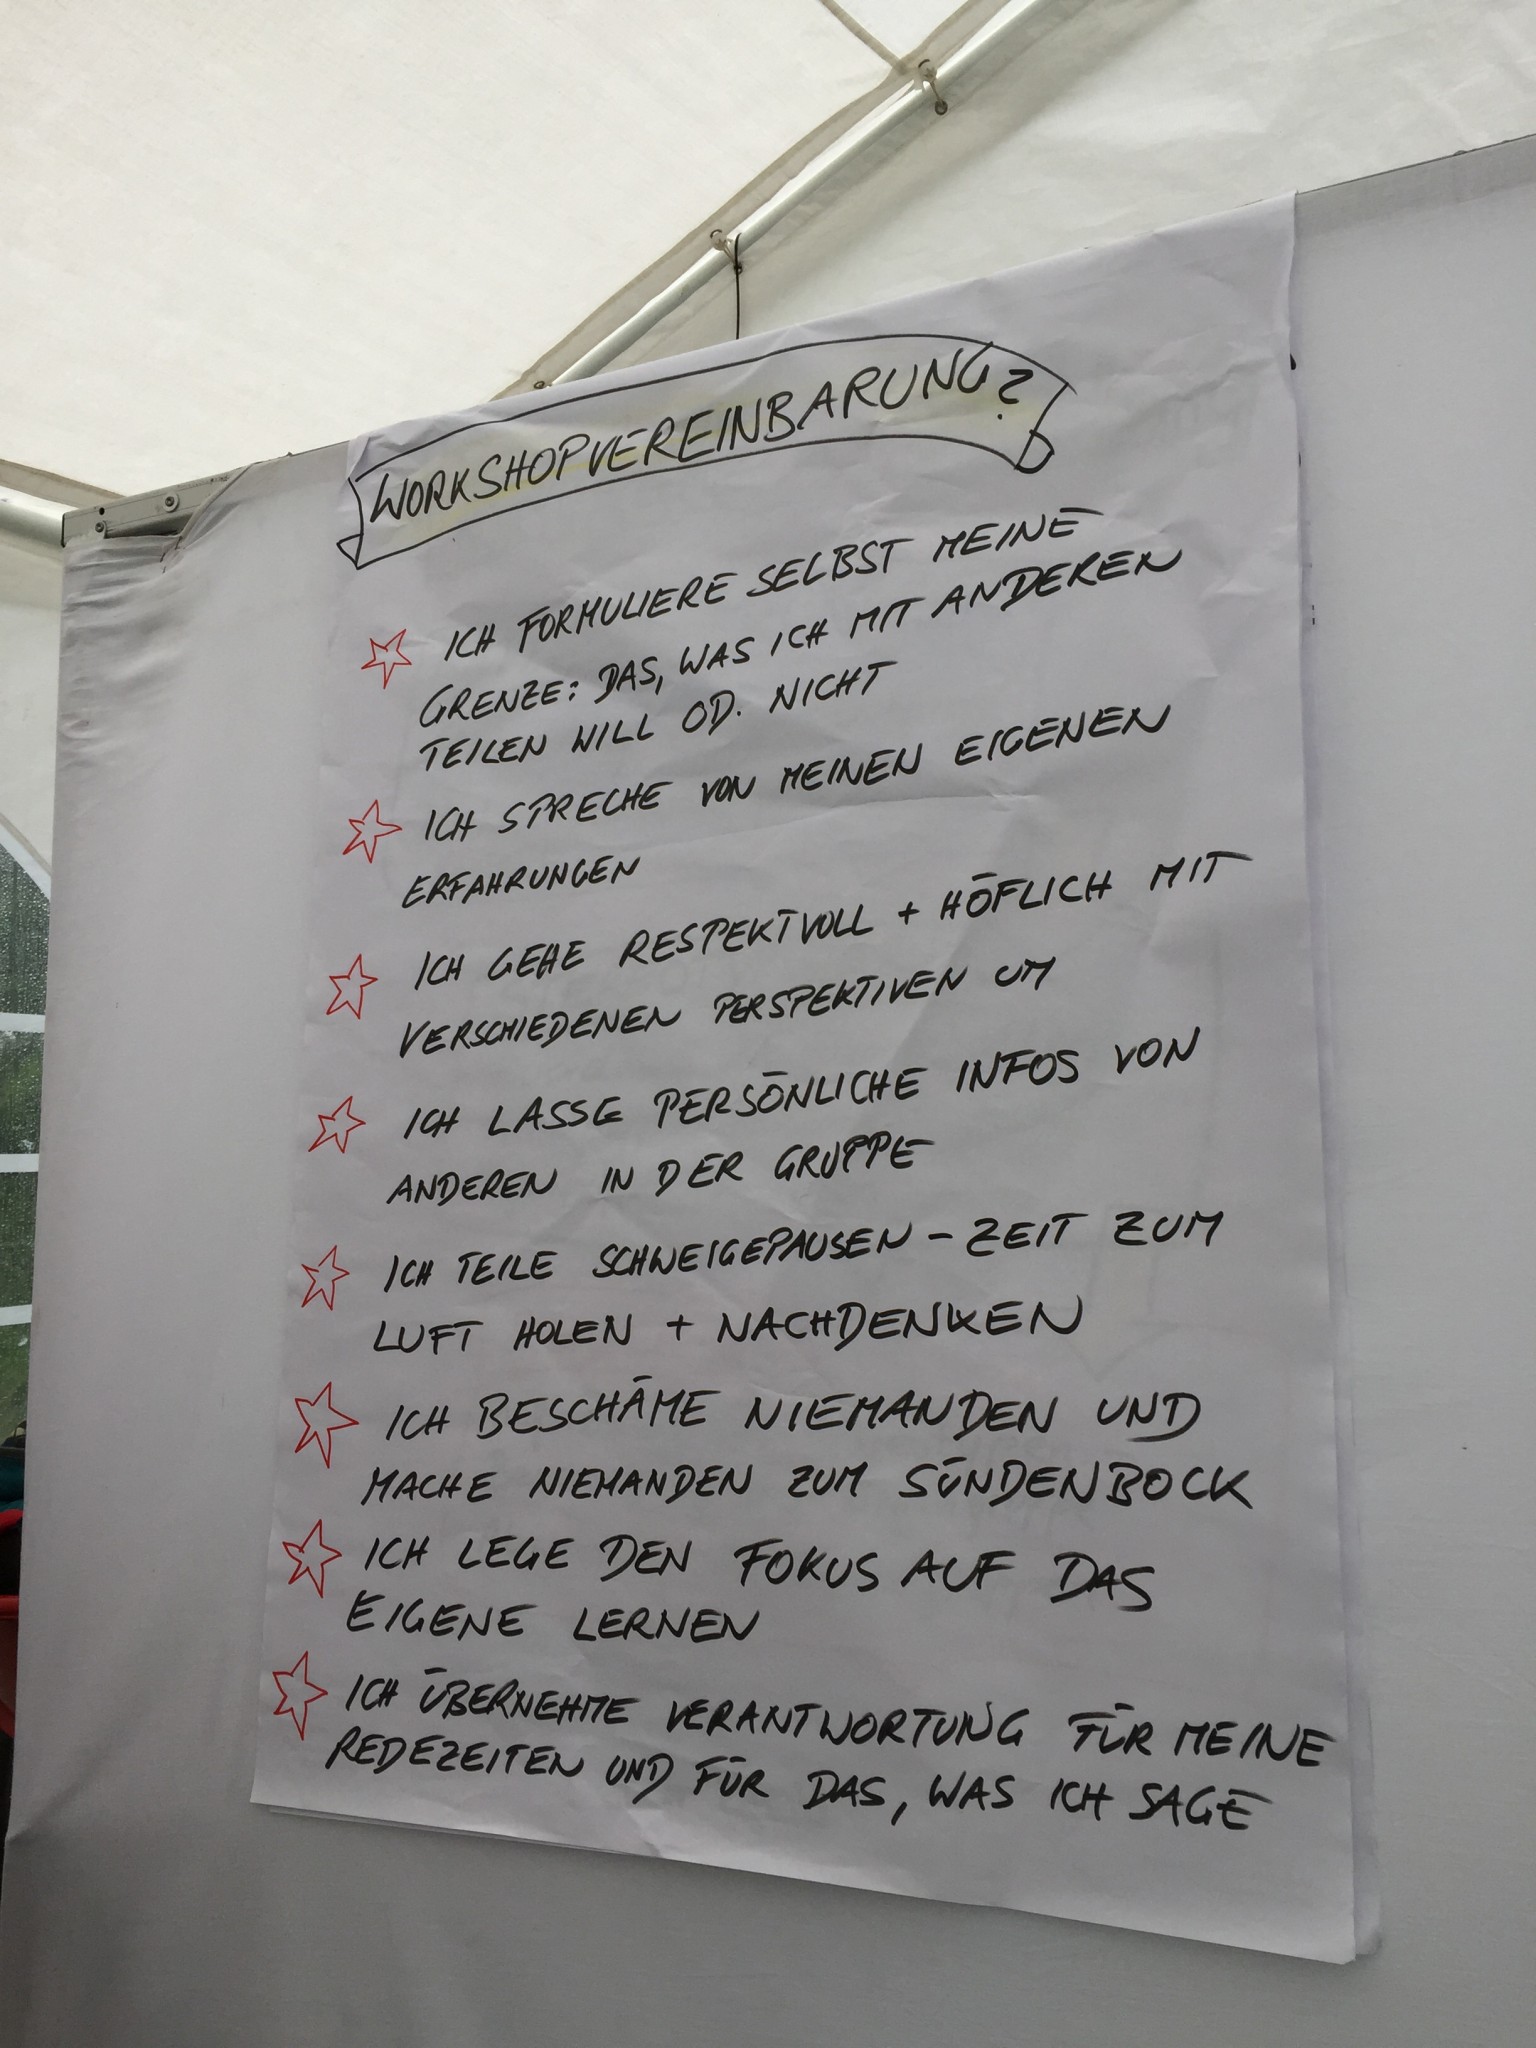 WORKSHOPVEREINBARUNG?
ICH FORMULIERE SELBST MEINE
GRENZE: DAS, WAS ICH MIT ANDEREN
TEILEN WILL OD. NICHT
ICH SPRECHE VON MEINEN EIGENEN
ERFAHRUNGEN
ICH GEHE RESPEKTVOLL + HÖFLICH MIT
VERSCHIEDENEN PERSPEKTIVEN UM
ICH LASSE PERSÖNLICHE INFOS VON
ANDEREN IN DER GRUPPE
ICH TEILE SCHWEIGEPAUSEN - ZEIT ZUM
LUFT HOLEN + NACHDENKEN
ICH BESCHÄME NIEMANDEN UND
MACHE NIEMANDEN ZUM SÜNDENBOCK
ICH LEGE DEN FOKUS AUF DAS
EIGENE LERNEN
ICH ÜBERNEHME VERANTWORTUNG FÜR MEINE
REDEZEITEN UND FÜR DAS, WAS ICH SAGE